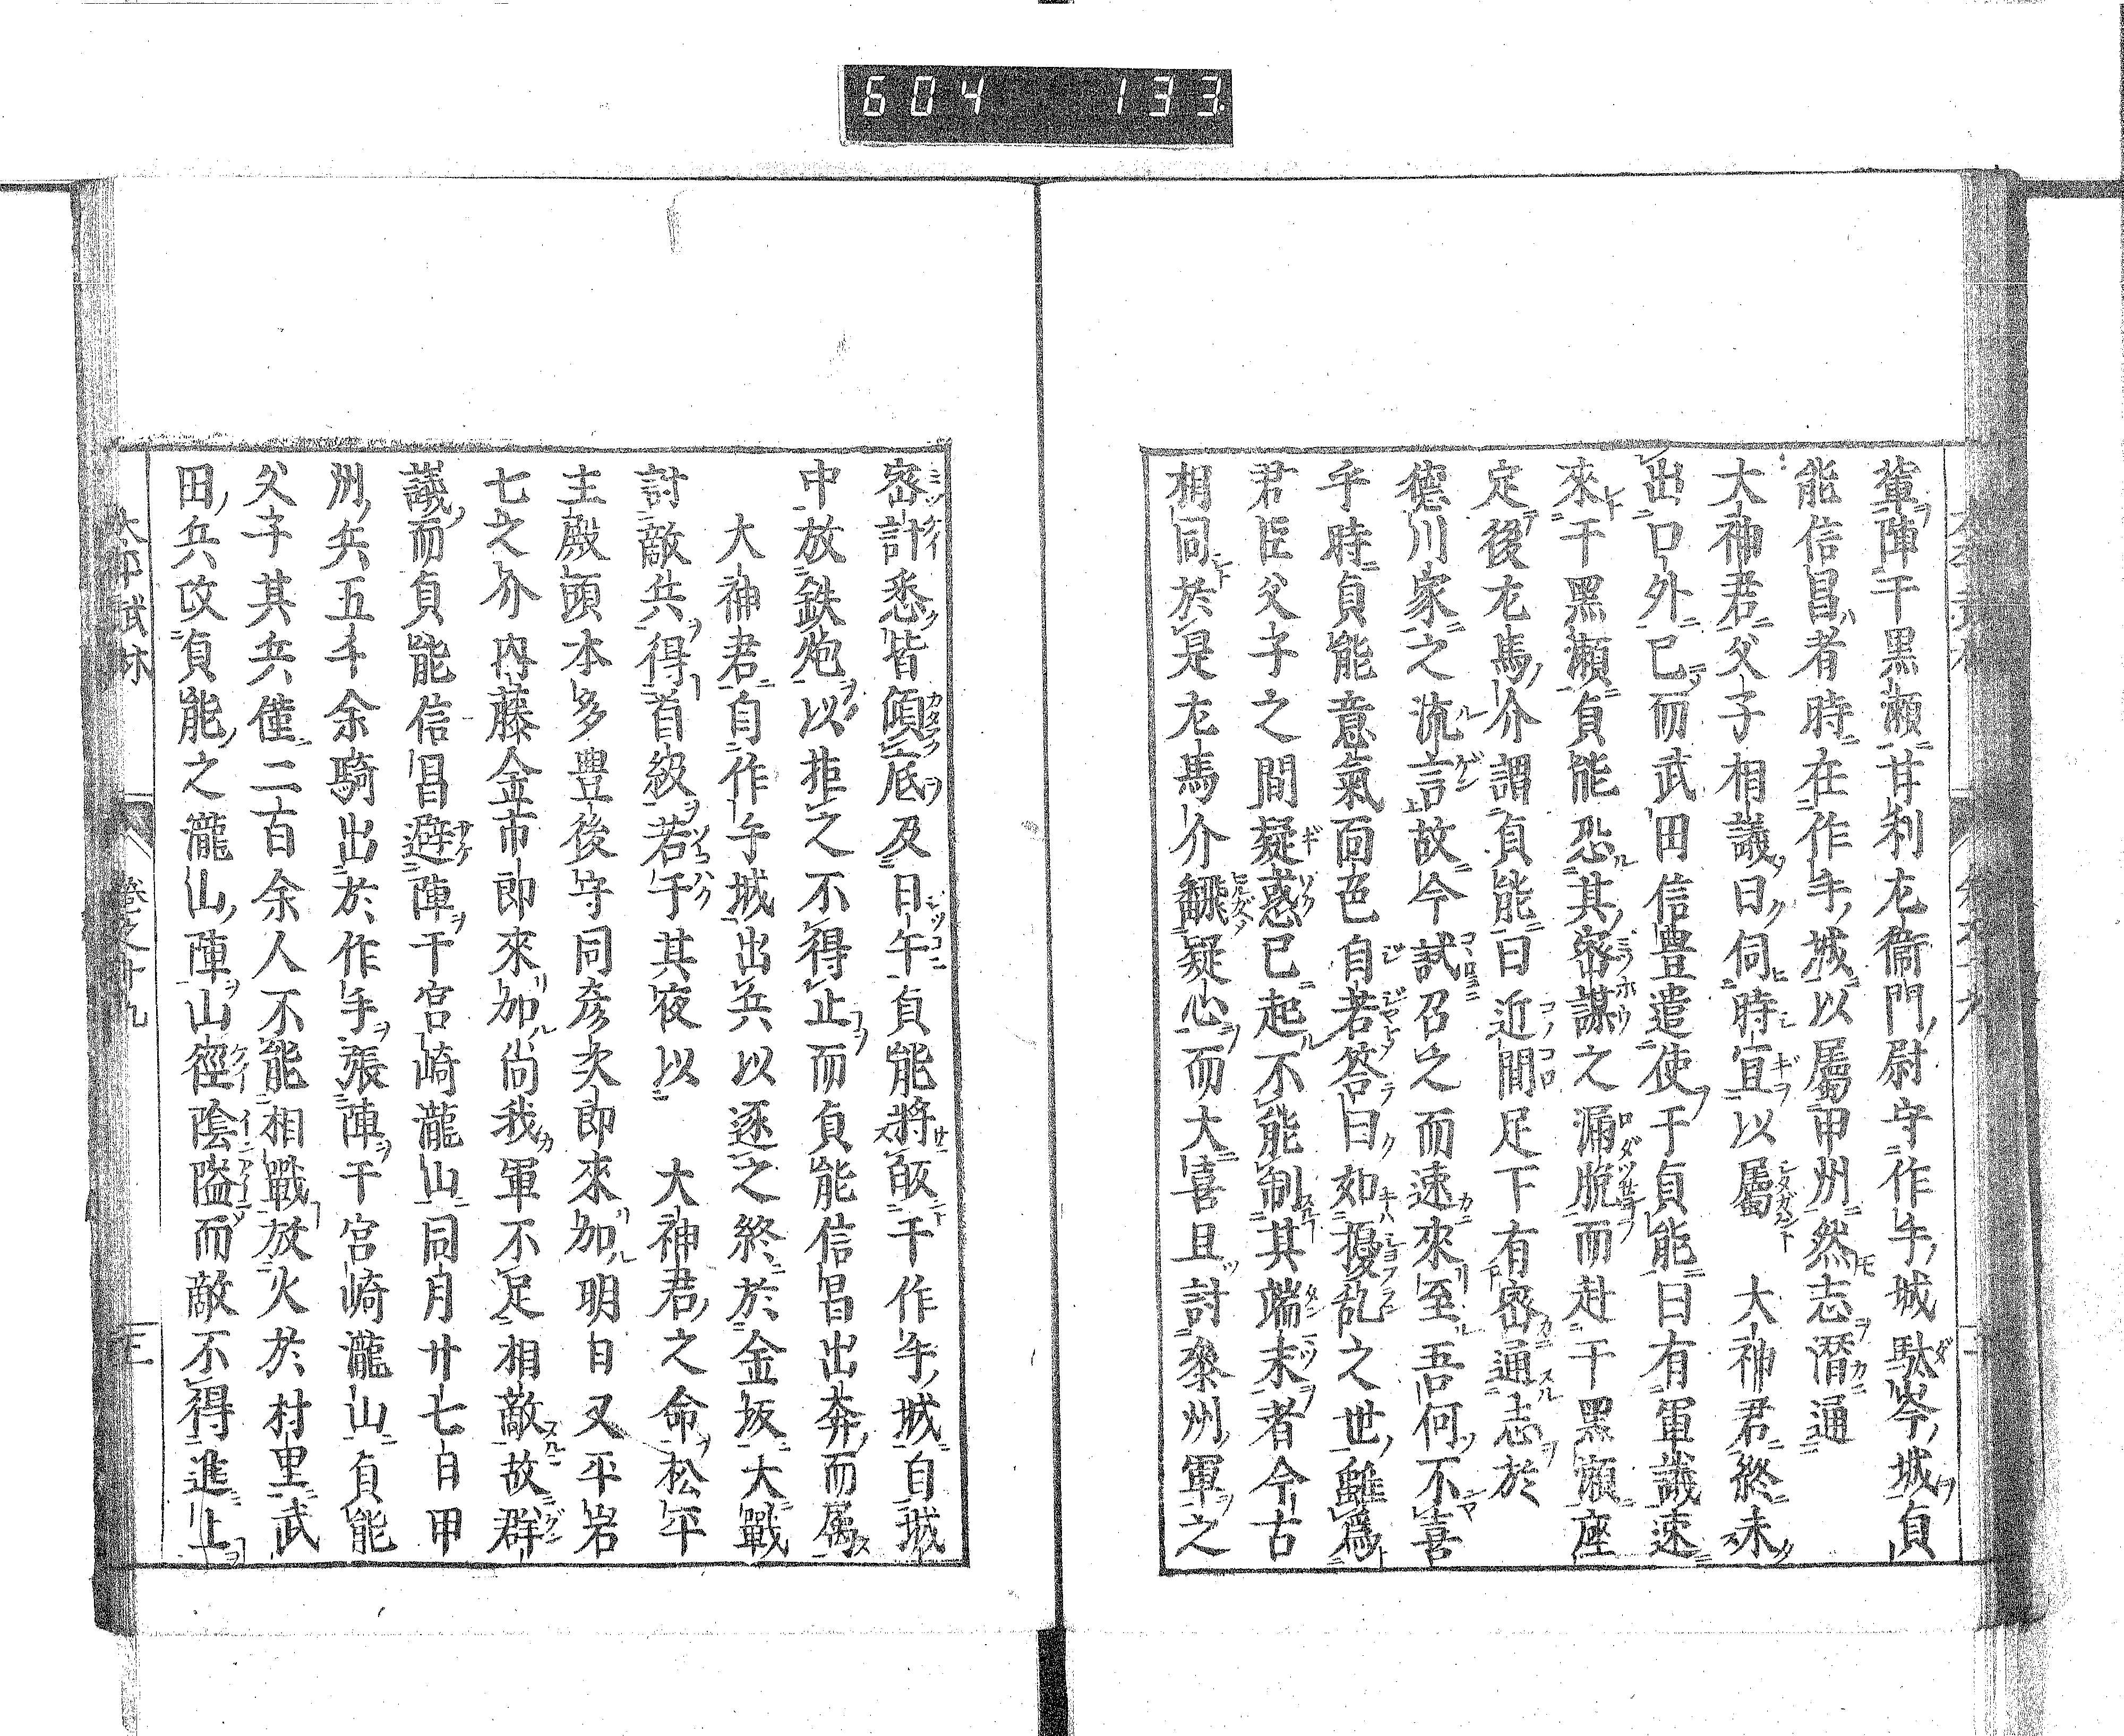 604 133
軰陣干黒瀬甘利尤衞門尉守作手城駄峯城貞
能信昌者時在作手城以屬甲州然志潛通
大神君父子相議曰伺時宜以屬 大神君終未
出口外已而武田信豊遣使于貞能曰有軍議速
來干黒瀬貞能恐其宻謀之漏脱而赴干黒瀬座
定後尤馬介謂貞能曰近間足下有宻通志於
德川家之流言故今試召之而速來至吾何不喜
乎時貞能意氣面色自若答曰如擾乱之世雖爲
君臣父子之間疑惑已起不能制其端末者今古
相同於是尤馬介飜疑心而大喜且討参州軍之
宻計悉皆傾底及日午貞能將皈干作手城自城
中放鉄炮以拒之不得止而貞能信昌出奔而属
大神君自作手城出兵以逐之終於金坂大戰
討敵兵得首級若于其夜以 大神君之命松平
主殿頭本多豊後守同彦次即來加明日又平岩
七之介内藤金市即來加尚我軍不足相敵故群
議而貞能信昌避陣干宮崎瀧山同月廿七日甲
州兵五千余騎出於作手張陣干宮崎瀧山貞能
父子其兵僅二百余人不能相戰放火於村里武
田兵攻貞能之瀧山陣山徑陰隘而敵不得進上
太平武林 卷之十九 三